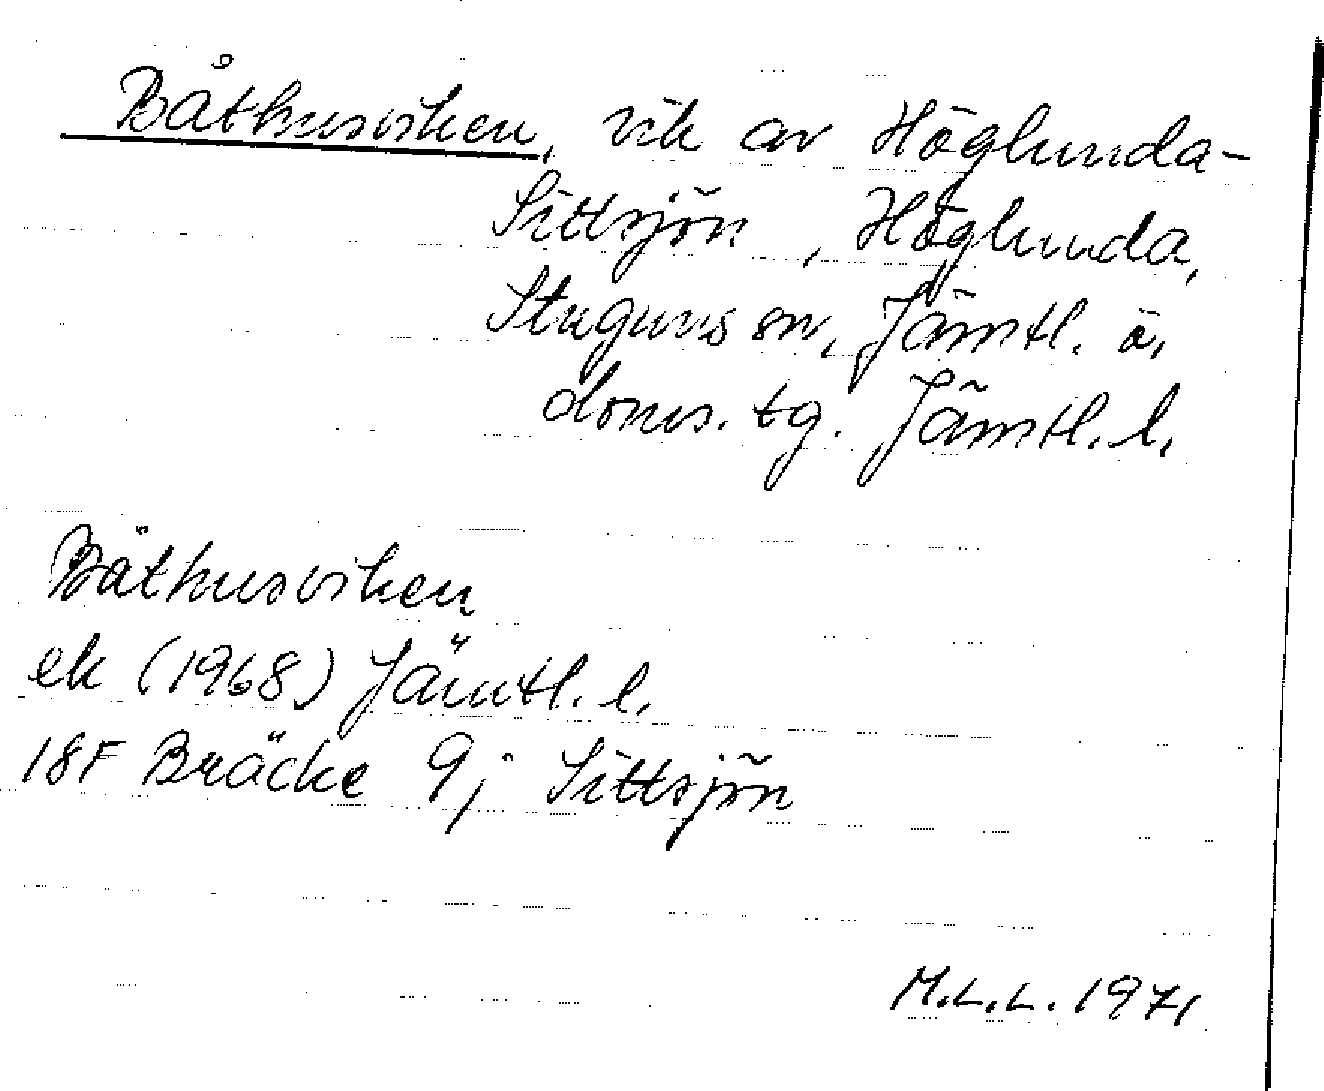 Båthusviken, vik av Höglunda-
Sittsjön, Höglunda,
Stuguns sn, Jämtl. ö.
doms. tg. Jämtl. l.
Båthusviken
ek (1968) Jämtl. l.
18F Bräcke 9j Sittsjön
M.L.L. 1971